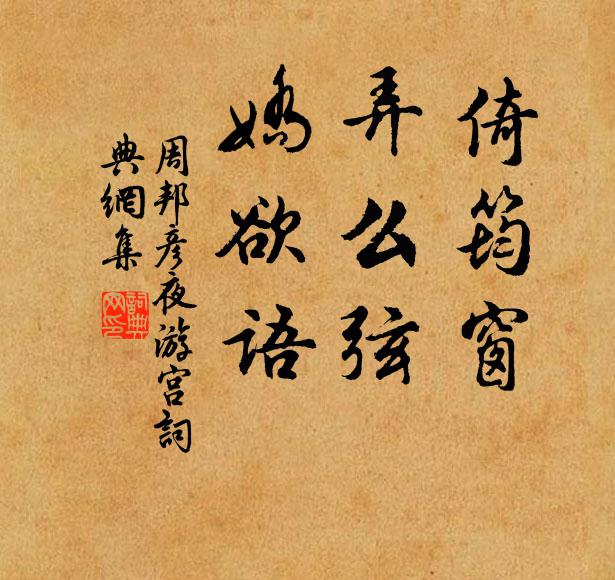 倚筠窗
弄么弦
娇欲语
周邦彦夜游宫詞
典網集
詞典网印